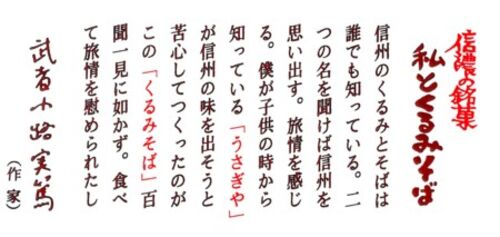 信濃の銘菓
私とくるみそば
信州のくるみとそばは
誰でも知っている。二
つの名を聞けば信州を
思い出す。旅情を感じ
る。僕が子供の時から
知っている「うさぎや」
が信州の味を出そうと
苦心してつくったのが
この「くるみそば」百
聞一見に如かず。食べ
て旅情を慰められたし
武者小路実篤
（作家）